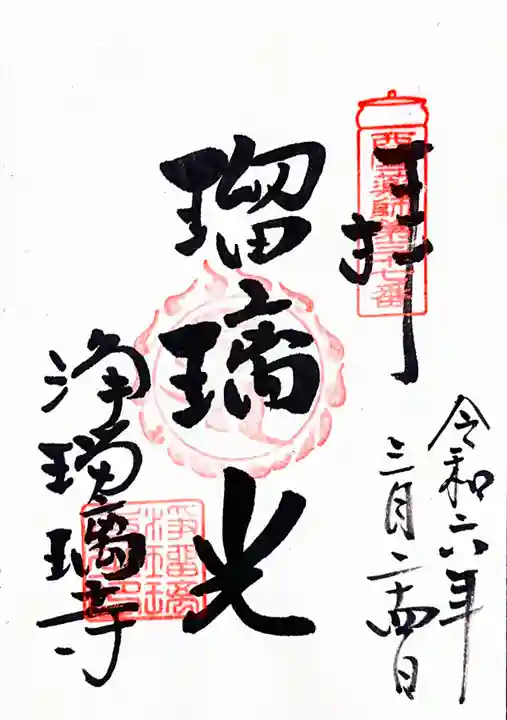 奉拝
西国薬師第三十七番
令和六年
三月二十四日
瑠璃光
浄瑠璃寺